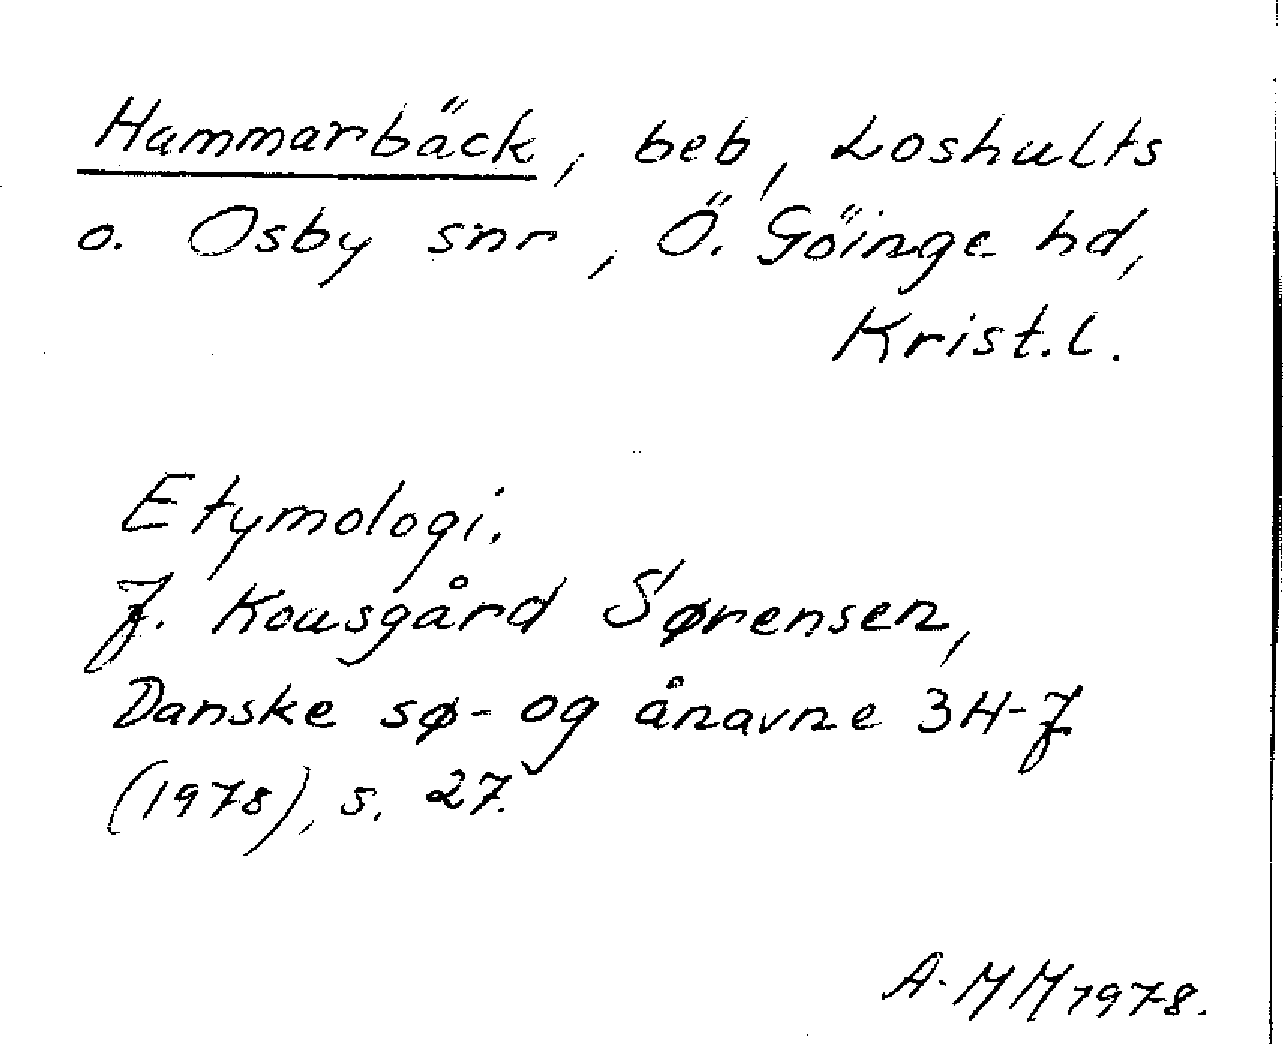 Hammarbäck, beb, Loshults
o. Osby snr, Ö. Göinge hd,
Krist.l.
Etymologi.
J. Kousgård Sørensen,
Danske sø- og ånavne 3H-J
(1978), s. 27.
A-MM 1978.